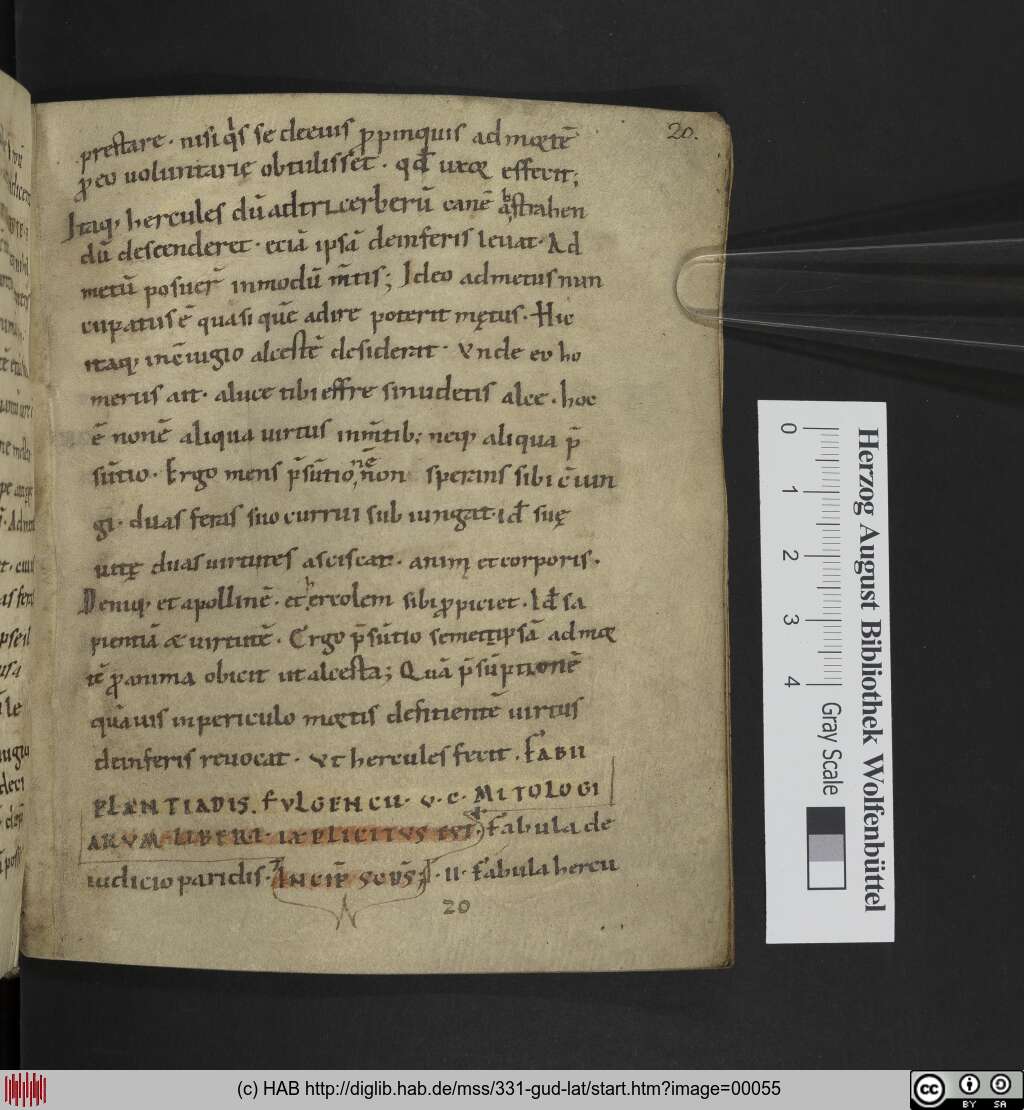 20.
prestare. nisi q̇s se deeius ꝓpinquis admortē
ꝓeo uoluntarię obtulisset. qđ uxor effecit;
Itaq; hercules dū adtricerberū canē abstrahen
dū descenderet. eciā ipsā deinferis leuat. Ad
metū posuer̄ inmodū m̄tis; Ideo admetus nun
cupatus ē quasi quē adire poterit mętus. Hic
itaq; in c̄iugio alcestē desiderat. Vnde eo ho
merus ait. aluce tibi effre sinudetis alce. hoc
ē nonē aliqua uirtus inm̄tib; neq; aliqua p̄
sūtio. Ergo mens p̄sūtionē non sperans sibi c̄iun
gi. duas feras suo currui sub iungat. id̄ suę
uitę duas uirtutes asciscat. animę et corporis.
Deniq; et apollinē. et hercolem sibi ꝓpiciet. Id̄ sa
pientiā & uirtutē. Ergo p̄sūtio semetipsā admor
tē ꝓanima obicit ut alcesta; Quā p̄sūptionē
quāuis inpericulo mortis deficientē uirtus
deinferis reuocat. Vt hercules fecit. FABII
PLANTIADIS. FVLGENCII. V. C. MITOLOGI
ARVM LIBERI. IEXPLICITVS EST. Fabula de
iudicio paridis. INCIP̄ SCDS̄. II. Fabula hercu
20
Herzog August Bibliothek Wolfenbüttel
0 1 2 3 4
Gray Scale
(c) HAB http://diglib.hab.de/mss/331-gud-lat/start.htm?image=00055
cc BY SA